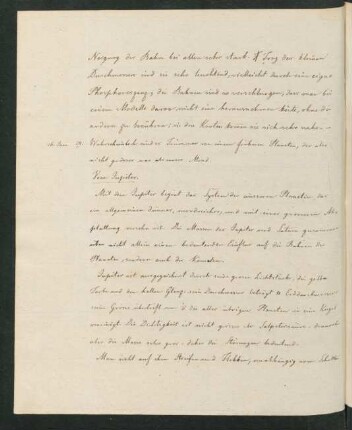 Neigung der Bahn bei allen sehr stark. Trotz der kleinen
Durchmesser sind sie sehr leuchtend, vielleicht durch ein eignes
Phosphoresziren; die Bahnen sind so verschlungen, dass man bei
einem Modelle davon nicht eine herausnehmen könnte, ohne die
anderen zu berühren; in den Knoten kommen sie sich sehr nahe.
Wahrscheinlich sind es Trümmer von einem frühern Planeten, der aber
nicht grösser war als unser Mond.
Vom Jupiter.
Mit dem Jupiter beginnt das System der äusseren Planeten, die
im Allgemeinen dünner, mondreicher, und mit einer grösseren Ab-
plattung versehn sind. Die Massen des Jupiter und Saturn
nicht allein einen bedeutenden Einfluss auf die Bahnen der
Planeten, sondern auch der Kometen.
Jupiter ist ausgezeichnet durch seine grosse Lichtstärke, die gelbe
Farbe und den hellen Glanz. Sein Durchmesser beträgt 11 Erddurchmesser
seine Grösse übertrifft um die aller übrigen Planeten in eine Kugel
vereinigt. Die Dichtigkeit ist nicht grösser als
aber die Masse sehr gross, daher die Störungen bedeutend.
Man sieht auf ihm Streifen und Flecken, unabhängig vom